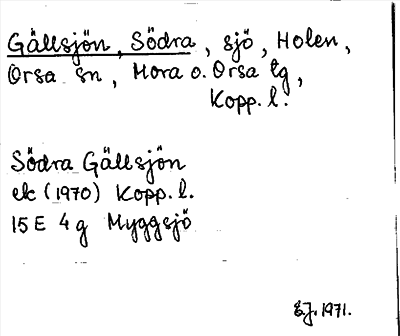 Gällsjön, Södra, sjö, Holen,
Orsa sn, Mora o. Orsa tg,
Kopp. l.
Södra Gällsjön
ek (1970) Kopp. l.
15 E 4 g Myggsjö
E.J. 1971.